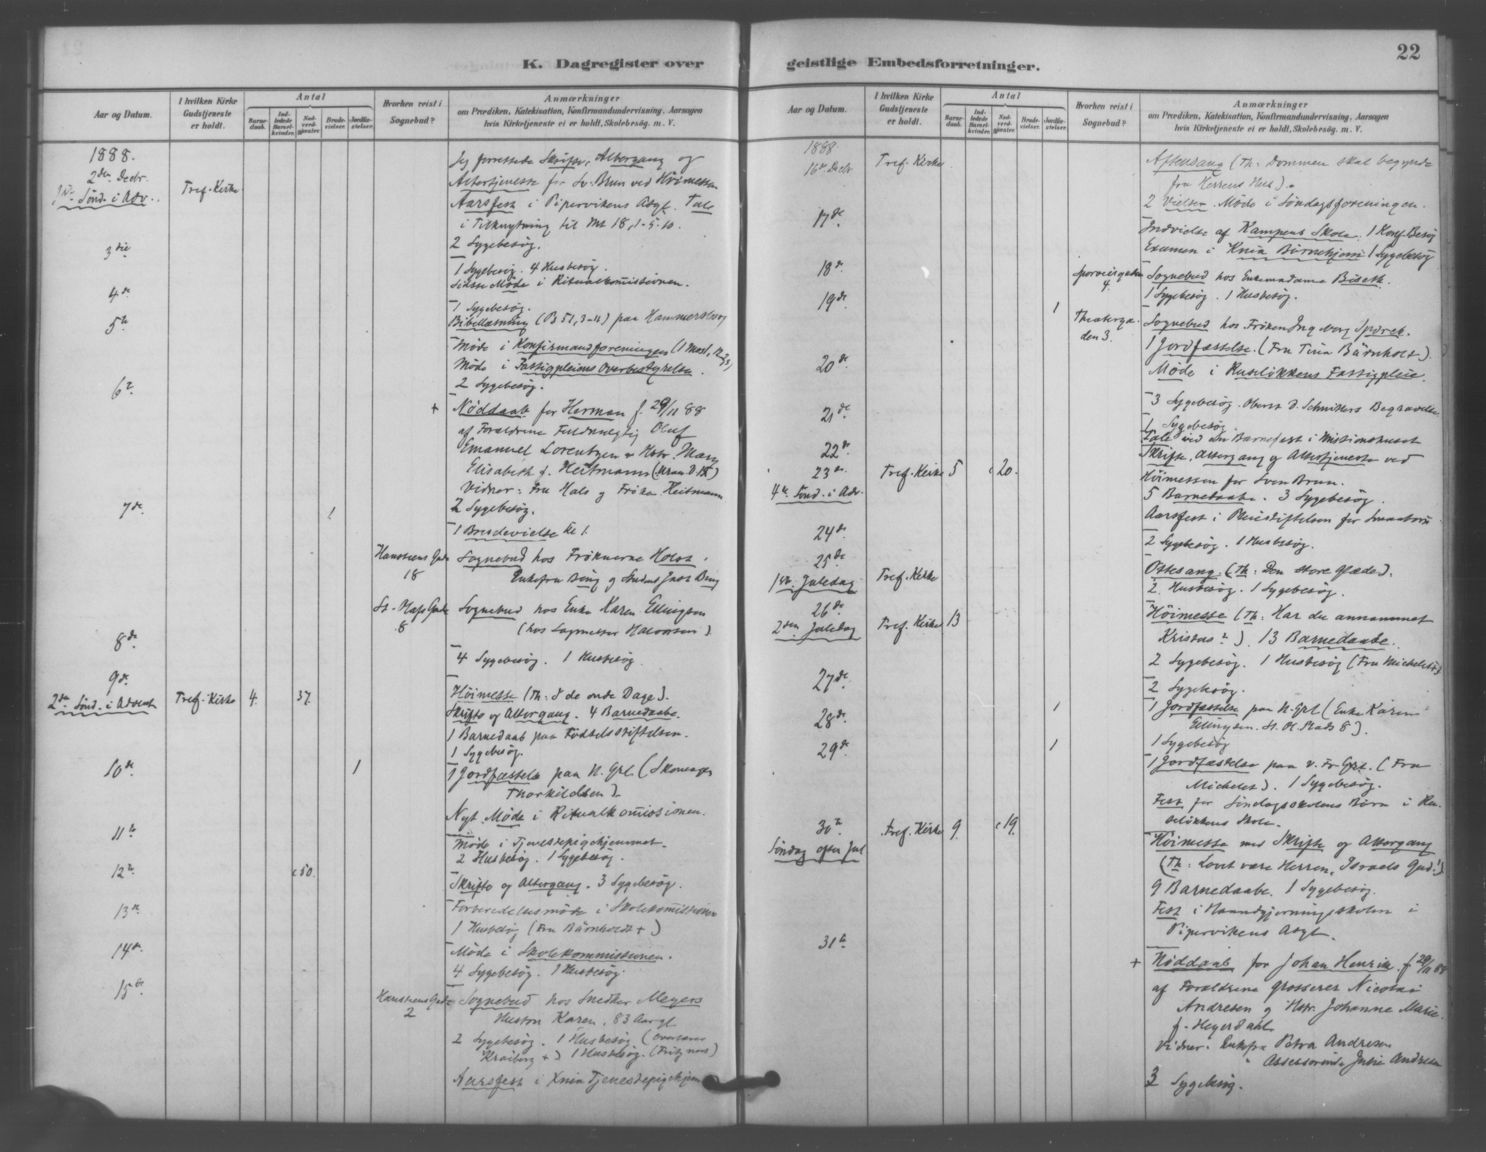 K. Dagregister over
Aar og Datum.
I hvilken Kirke Gudstjeneste er holdt.
Antal
Barnedaab.
Indledede Barselkvinder.
Nadverdgjæster.
Brudevielser.
Jordfæstelser.
Hvorhen reist i Sognebud?
Anmærkninger
om Prædiken, Katekisation, Konfirmandundervisning, Aarsagen
hvis Kirketjeneste ei er holdt, Skolebesøg. m. V.
1888.
2den Decbr.
1ste Sønd. i Adv. Tref. Kirke
Jeg forrettede Skrifte, Altergang og
Altertjeneste for Sv. Brun ved Høimessen
Aarsfest i Pipervikens Asyl. Tale
i Tilknytning til Mt 18, 1-5. 10.
2 Sygebesøg.
3die
1 Sygebesøg. 4 Husbesøg.
Sidste Møde i Ritualkommissionen.
4de
1 Sygebesøg.
5te
Bibellæsning (Ps 51, 3-11) paa Hammersborg
Møde i Konfirmandforeningen
Møde i Fattigpleiens Overbestyrelse.
6te
2 Sygebesøg.
+ Nøddaab for Herman f. 29/11 88
af Forældrene Fuldmægtig Oluf
Emanuel Lorentzen & Hstr. Mary
Elisabeth f. Heitmann
Vidner: Fru Hals og Frøken Heitmann
7de 1
2 Sygebesøg.
1 Brudevielse Kl.
Hanstens Gade 18 Sognebud hos Frøknerne Holst.
Enkefru Bing og Student Jact Bing
St. Hals Gade 8 Sognebud hos Enke Karen Ellingsen
(hos Sagmester Halvorsen)
8de
4 Sygebesøg. 1 Husbesøg.
9de
2den Sønd. i Advent Tref. Kirke 4. 37.
Høimesse (Th: I de onde Dage).
Skrifte og Altergang. 4 Barnedaabe.
1 Barnedaab paa Fødselsstiftelsen.
1 Sygebesøg.
10de 1
1 Jordfæstelse paa N. Grl. (Skomager
Thorkildsen).
Nyt Møde i Ritualkommissionen.
11te
Møde i Tjenestepigehjemmet.
2 Husbesøg. 1 Sygebesøg.
12te c 50.
Skrifte og Altergang. 3 Sygebesøg.
13de
Forberedelsesmøde i Skolekommissionen
1 Husbesøg (Fru Bärnholdt +)
14de
Møde i Skolekommissionen.
4 Sygebesøg. 1 Husbesøg.
15de
Hanstens Gade 2 Sognebud hos Snedker Meyers
Hustru Karen. 83 Aar gl.
2 Sygebesøg. 1 Husbesøg (
+) 1 Husbesøg.
Aarsfest i Tjenestepigehjem
geistlige Embedsforretninger.
22
Aar og Datum.
I hvilken Kirke Gudstjeneste er holdt.
Antal
Barnedaab.
Indledede Barselkvinder.
Nadverdgjæster.
Brudevielser.
Jordfæstelser.
Hvorhen reist i Sognebud?
Anmærkninger
om Prædiken, Katekisation, Konfirmandundervisning, Aarsagen
hvis Kirketjeneste ei er holdt, Skolebesøg. m. V.
1888
16de Decbr. Tref. Kirke
Aftensang (Th: Dommen skal begynde
fra Herrens Hus).
2 Vielser. Møde i Søndagsforeningen.
17de
Indvielse af Kampens Skole. 1 Konf. Besøg
Examen i Børnehjem 1 Sygebesøg
18de
Sporveisgaden 4. Sognebud hos Enkemadame
1 Sygebesøg. 1 Husbesøg.
19de 1
Theatergaden 3. Sognebud hos Frøken Ingeborg
1 Jordfæstelse. (Fru Tina Bärnholdt)
20de
Møde i Ruseløkkens Fattigpleie.
3 Sygebesøg. Oberst D. Schnitlers Begravelse.
21de
1 Sygebesøg.
22de
Tale ved en Barnefest i Missionshuset
23de Tref. Kirke 5 c 20.
4de Sønd. i Adv.
Skrifte, Altergang og Altertjeneste ved
Høimessen for Sven Brun.
5 Barnedaabe. 3 Sygebesøg.
Aarsfest i Pleiestiftelsen for Smaabørn
24de
2 Sygebesøg. 1 Husbesøg.
25de
1ste Juledag Tref. Kirke
Ottesang. (Th: Den store Glæde).
2 Husbesøg. 1 Sygebesøg.
26de
2den Juledag Tref. Kirke 13
Høimesse (Th: Har du annammet
Kristus?). 13 Barnedaabe.
2 Sygebesøg. 1 Husbesøg (Fru Michelet)
27de
2 Sygebesøg.
28de 1
1 Jordfæstelse paa N. Grl (Enke Karen
Ellingsen. St. Ol. Plads 8).
29de 1
1 Sygebesøg
1 Jordfæstelse paa V. Fr. Grl. (Fru
Michelet). 1 Sygebesøg.
Fest for Søndagsskolens Børn i Ruseløkkens Skole.
30te Tref. Kirke 9. c 19.
Søndag efter Jul
Høimesse med Skrifte og Altergang
(Th: Lovet være Herren, Israels Gud!)
9 Barnedaabe. 1 Sygebesøg.
Fest i Haandgjerningsskolen i
Pipervikens Asyl.
31te
+ Nøddaab for Johan Henrik. f 29/11 88
af Forældrene Grosserer Nicolai
Andresen og Hstr. Johanne Marie
f. Heyerdahl
Vidner: Enkefru Petra Andresen
" Assessorinde Julie Andresen
3 Sygebesøg.